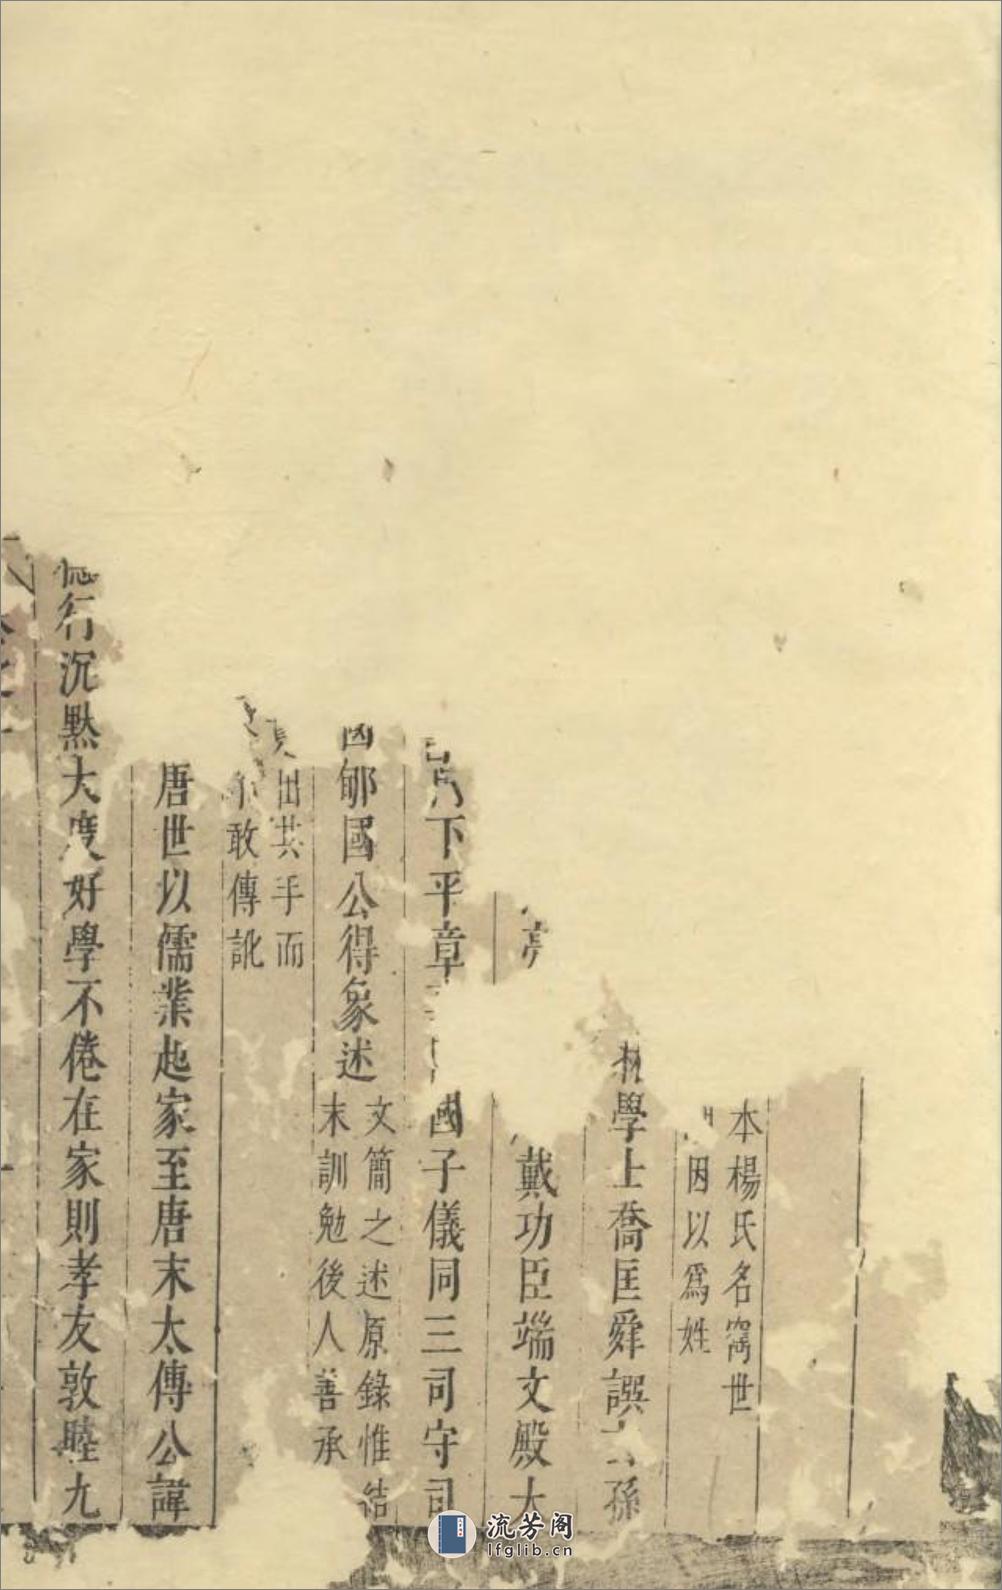 本楊氏名寯世
因以爲姓
學士喬匡舜譔 孫
戴功臣端文殿大
下平章 國子儀同三司守司
郇國公得象述
文簡之述原錄惟結
末訓勉後人善承
出其手而
敢傳訛
唐世以儒業起家至唐末太傅公諱
行沉默大度好學不倦在家則孝友敦睦九
流芳阁
lfglib.cn